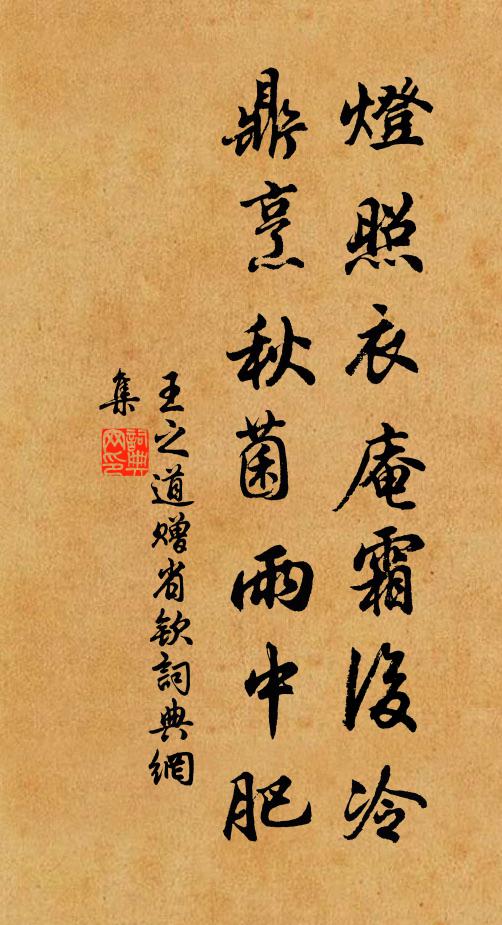 燈照衣庵霜後冷
鼎烹秋菌雨中肥
王之道贈省欽詞典網
集
詞典网印